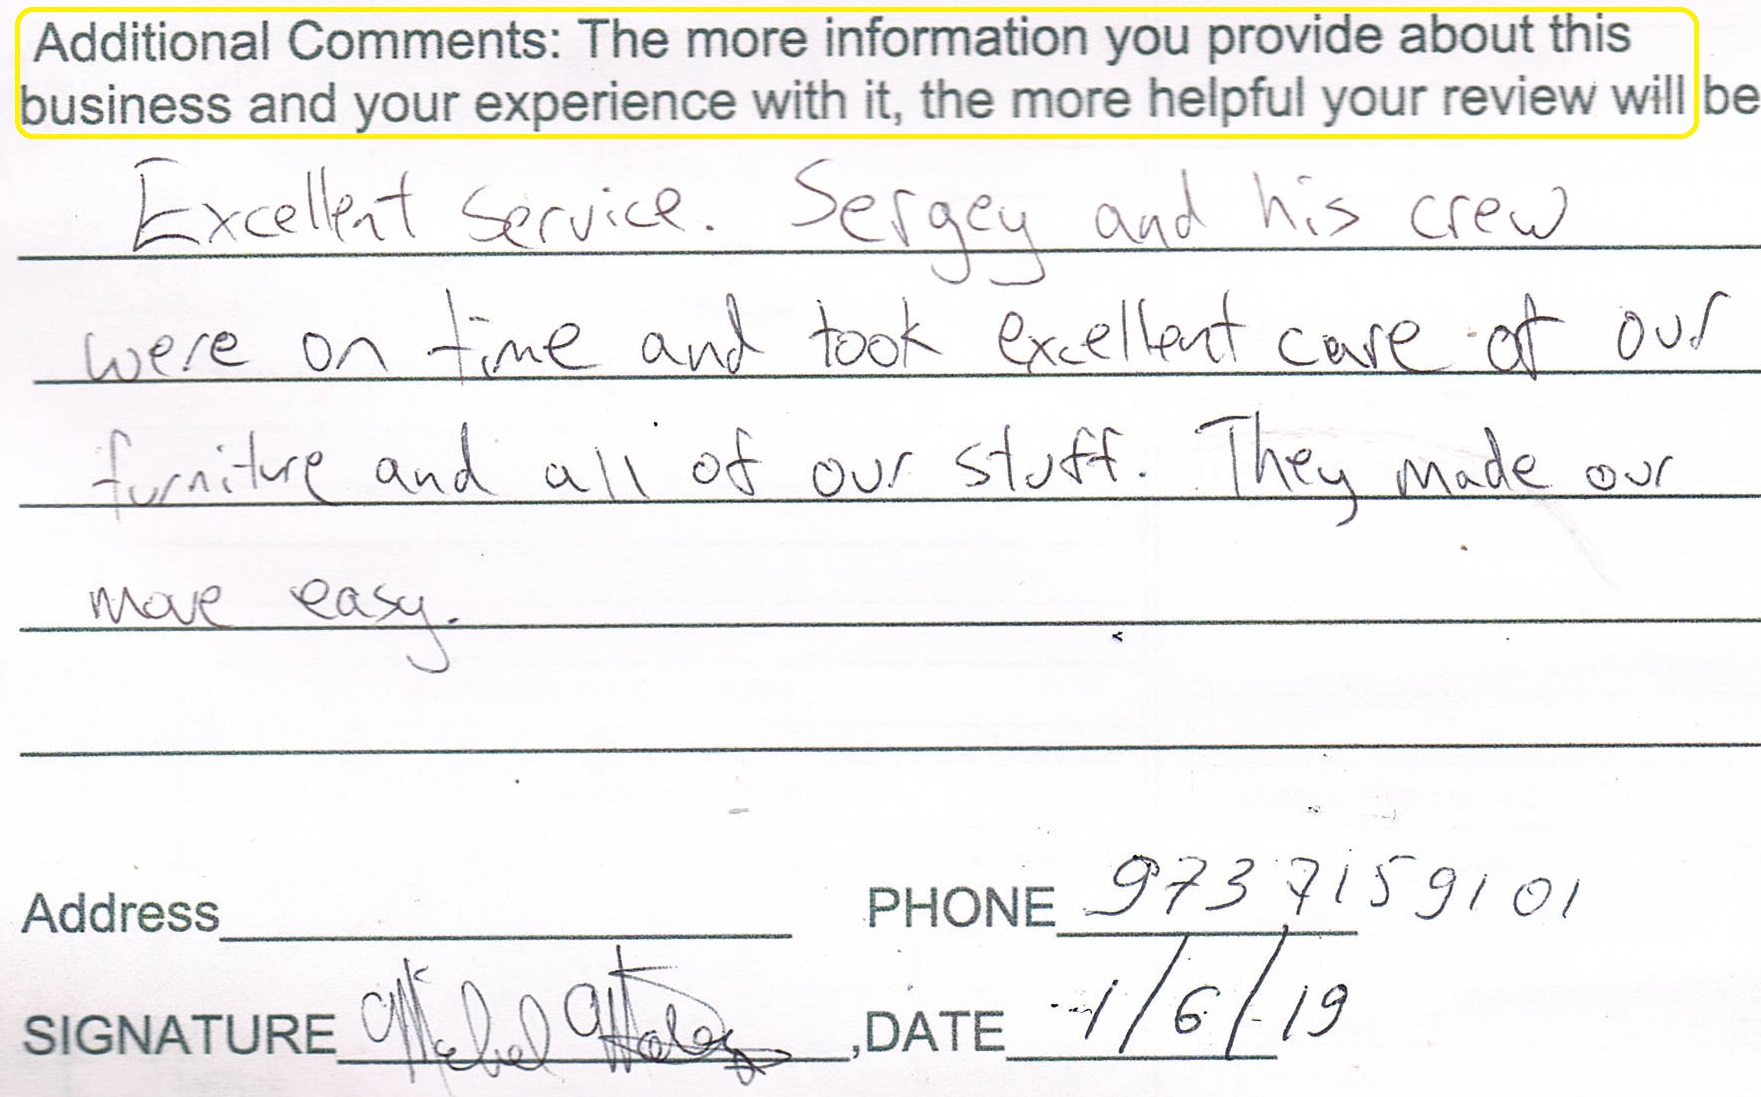 Additional Comments: The more information you provide about this
business and your experience with it, the more helpful your review will be
Excellent Service. Sergey and his crew
were on time and took excellent care of our
furniture and all of our stuff. They made our
move easy.
Address PHONE 9737159101
SIGNATURE ,DATE 1/6/19